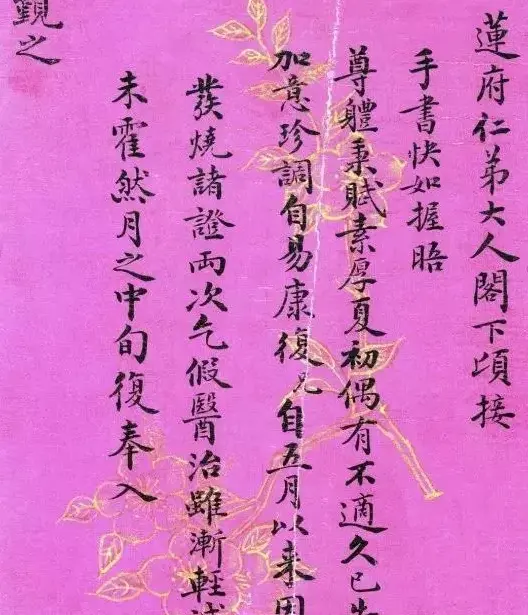 蓮府仁弟大人閣下頃接
手書快如握晤
尊體秉賦素厚夏初偶有不適久已
加意珍調自易康復兄自五月以来因
發燒諸證兩次乞假醫治雖漸輕減
未霍然月之中旬復奉入
觀之